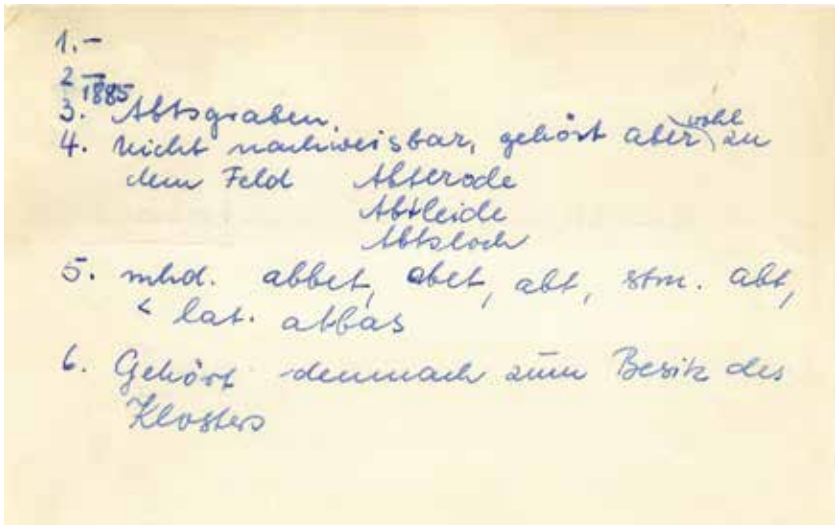 1. –
2 –
3. 1885 Abtsgraben.
4. Nicht nachweisbar, gehört aber wohl zu
dem Feld Abterode
Abtleide
Abtsloch
5. mhd. abbet, abet, abt, stm. abt,
< lat. abbas
6. Gehört demnach zum Besitz des
Klosters